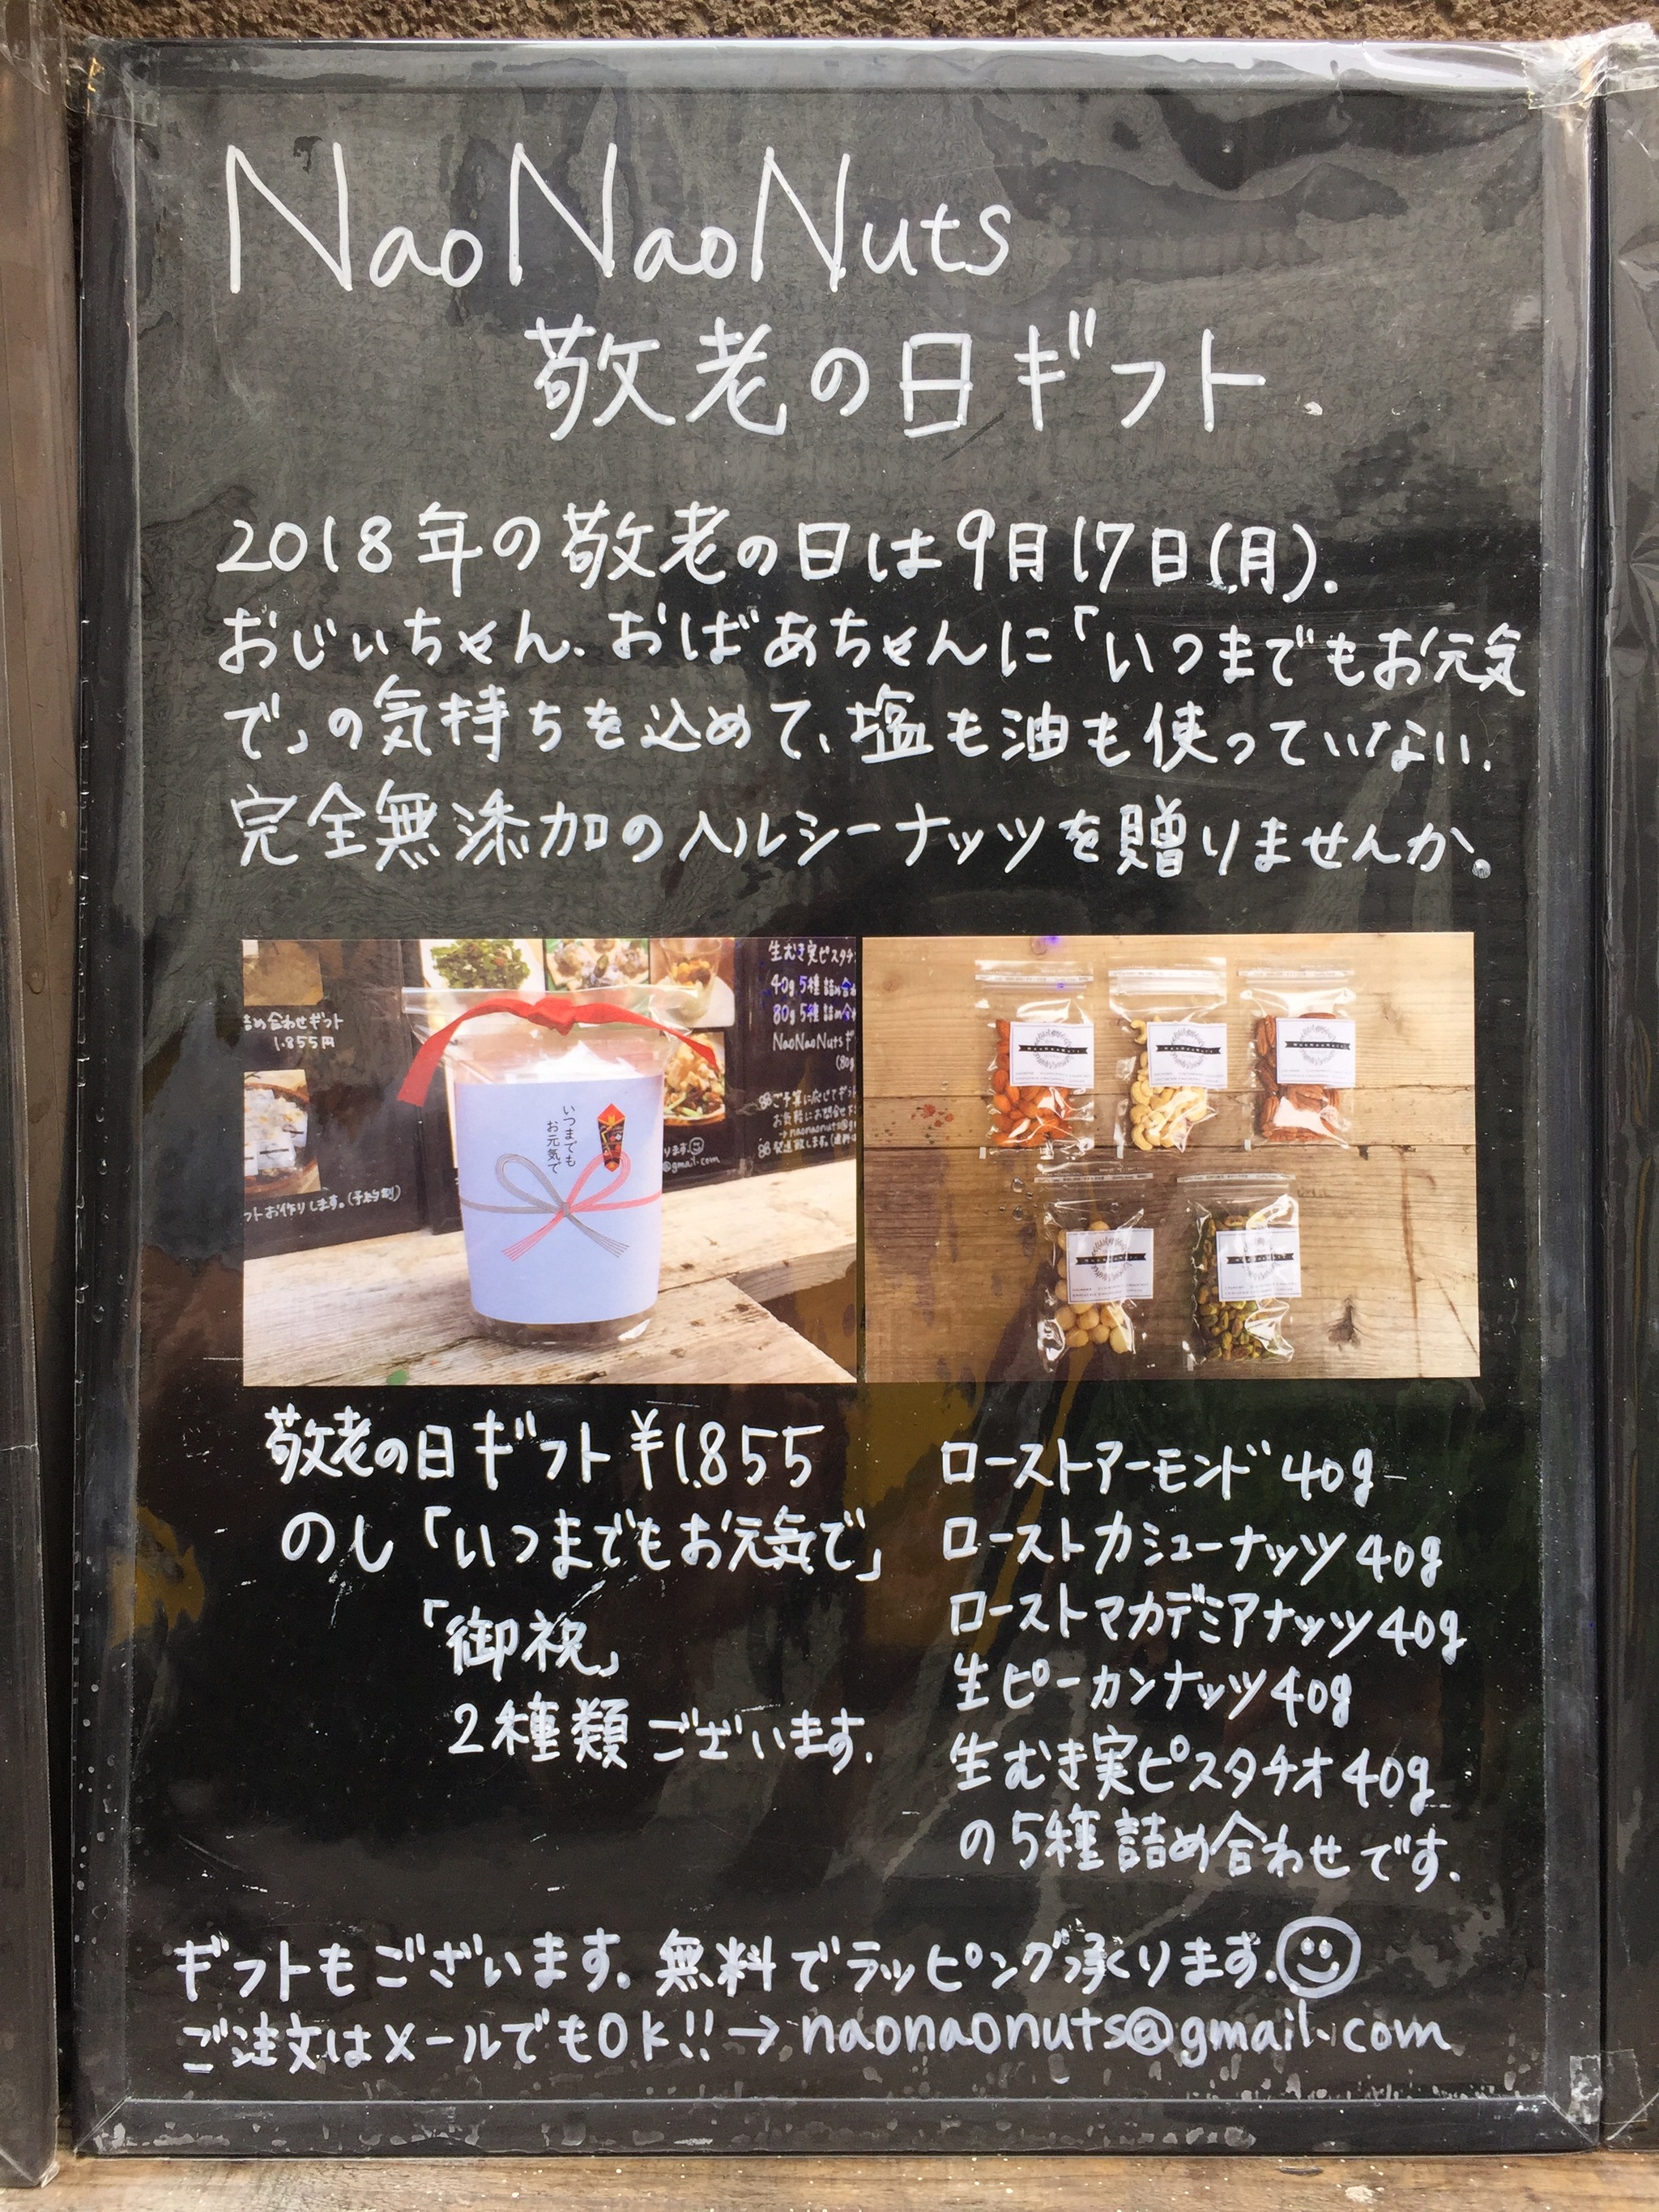 NaoNaoNuts
敬老の日ギフト.
2018年の敬老の日は9月17日(月).
おじいちゃん.おばあちゃんに「いつまでもお元気
で」の気持ちを込めて、塩も油も使っていない.
完全無添加のヘルシーナッツを贈りませんか。
詰め合わせギフト
1.855円
フトお作りします。(予約制)
いつまでも
お元気で
@gmail.com
生むき実ピスタチ
40g 5種 詰め合わ
80g 5種 詰め合
NaoNaoNuts ギ
(80g
ご予算に応じてギフ
NaoNaoNuts
NaoNaoNuts
NaoNaoNuts
敬老の日ギフト¥1.855
のし「いつまでもお元気で」
「御祝」
2種類ございます.
ローストアーモンド 40g
ローストカシューナッツ 40g
ローストマカデミアナッツ 40g
生ピーカンナッツ 40g
生むき実ピスタチオ 40g
の5種詰め合わせです.
ギフトもございます.無料でラッピング承ります.
ご注文はメールでもOk!!→naonaonuts@gmail.com